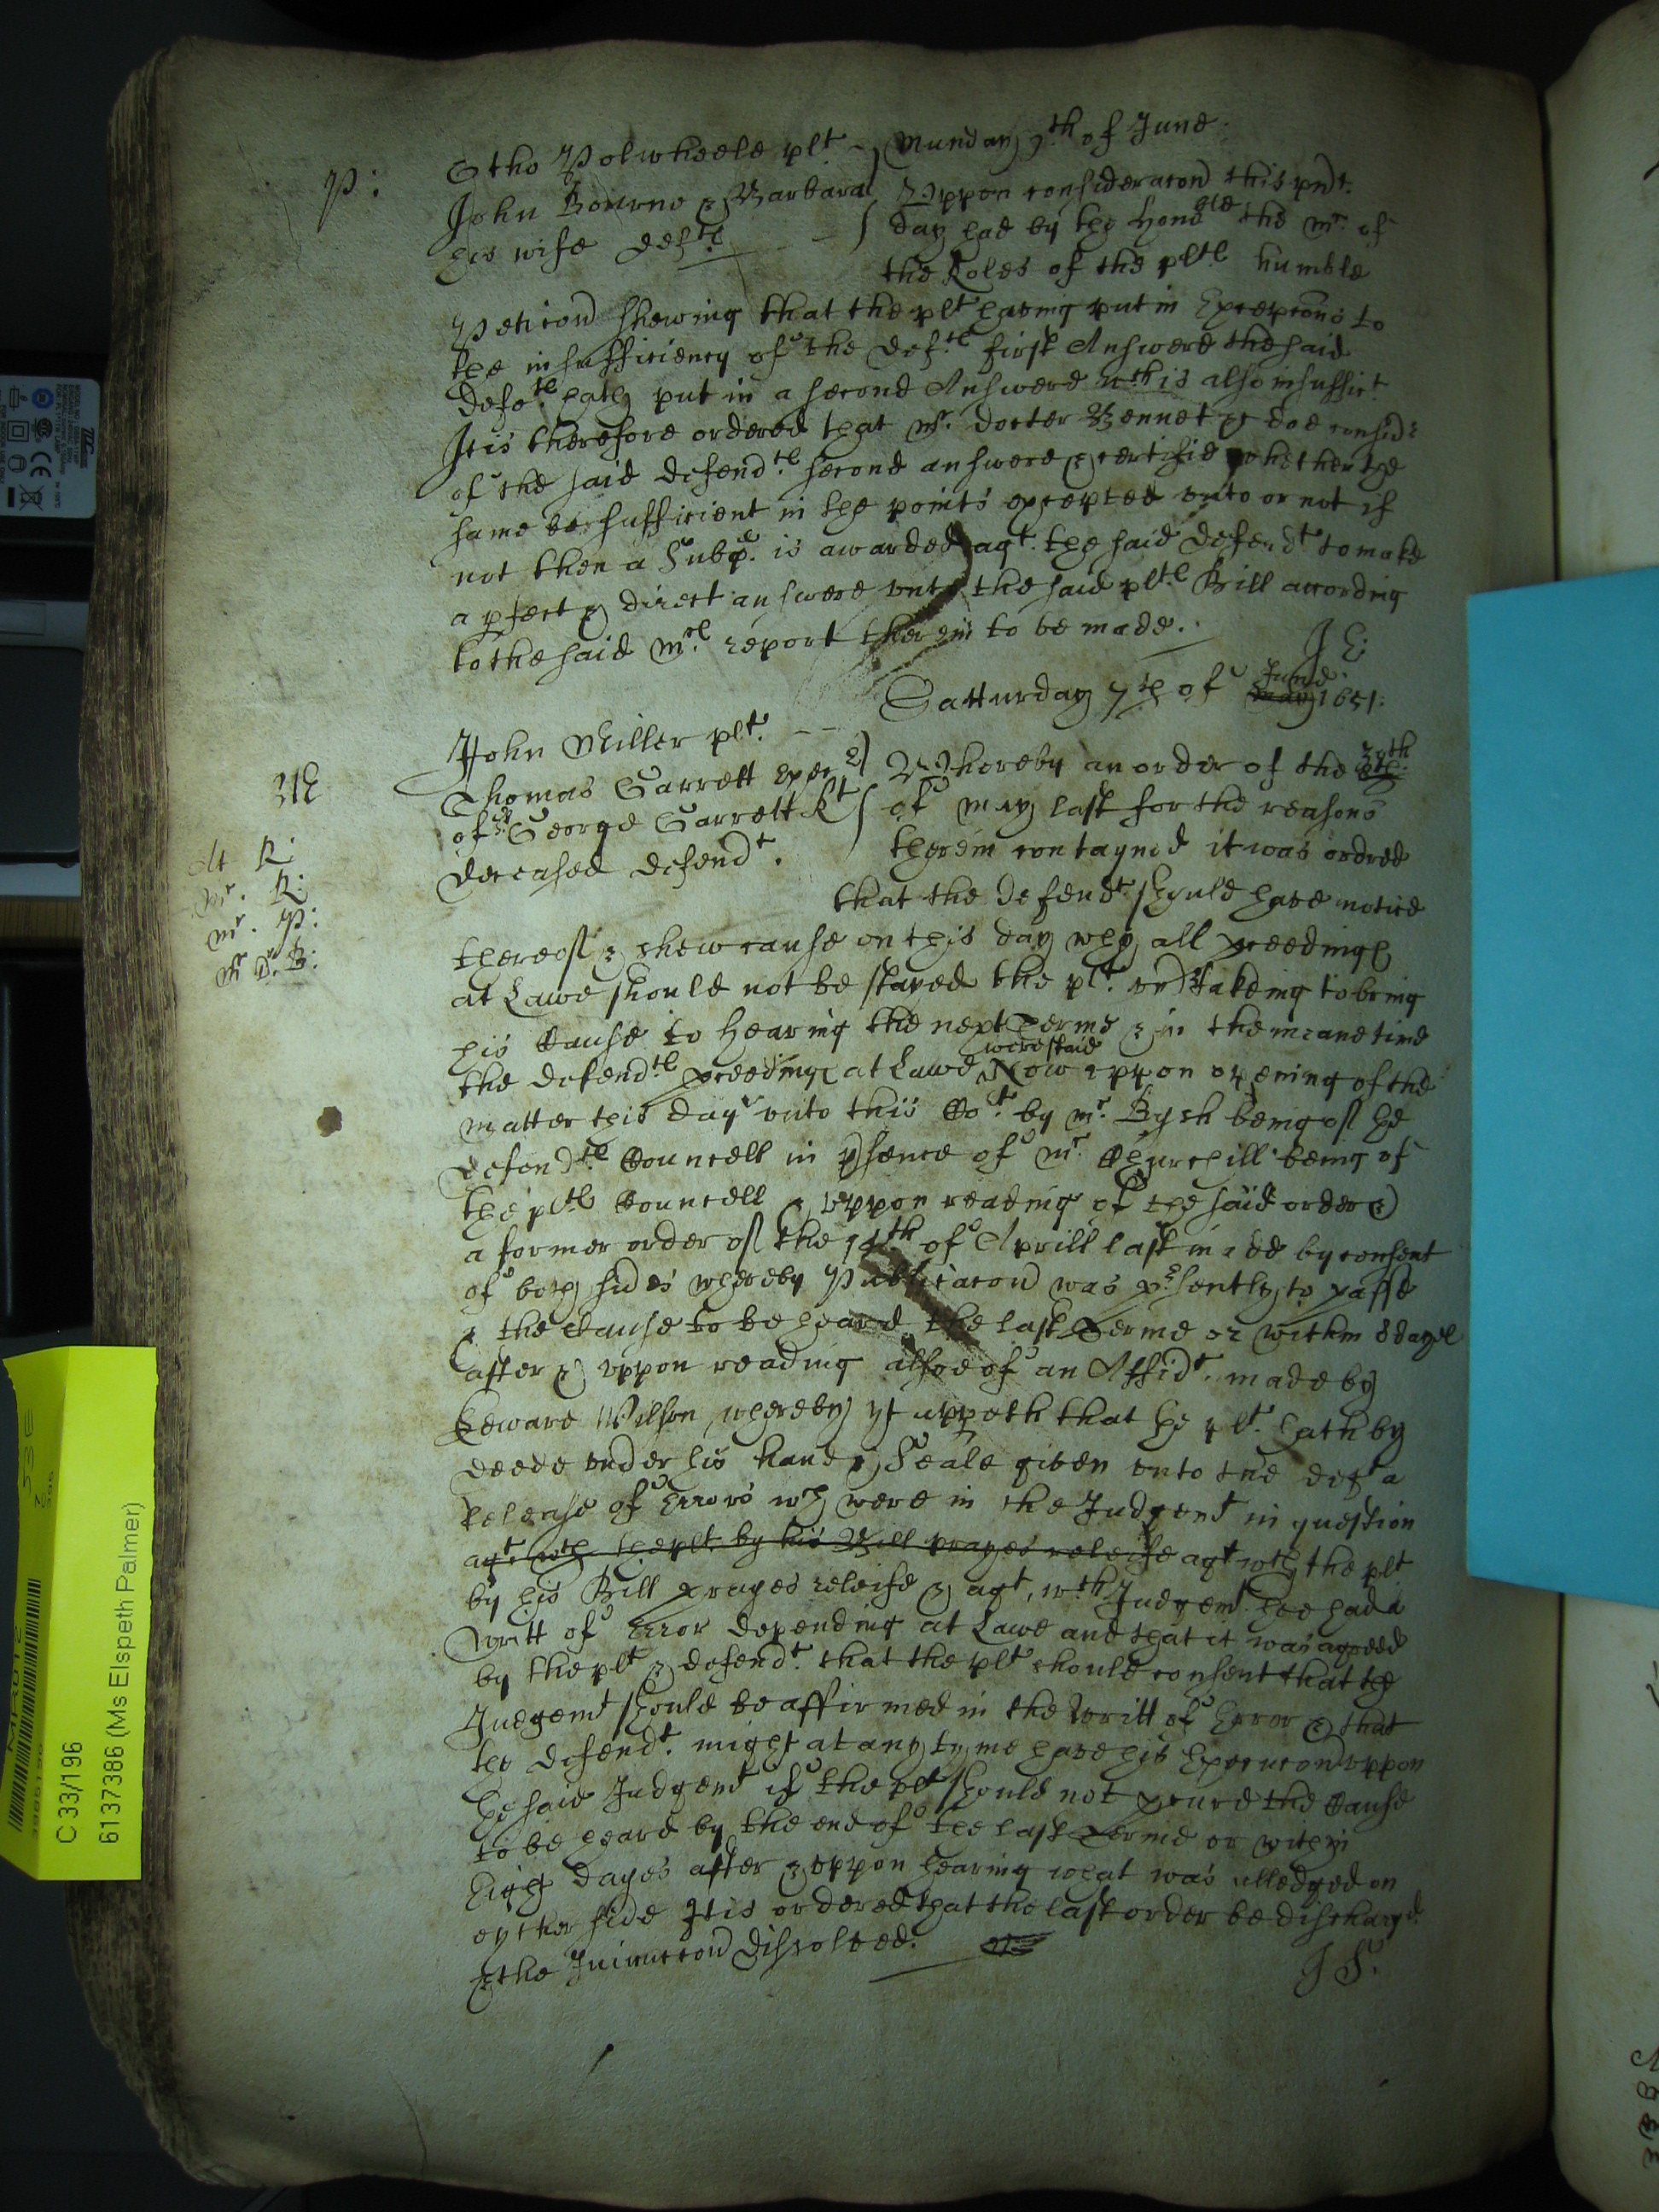 P:
Otho Polwheele plt
Munday 9th of June
John Bourne & Barbara
his wife defts
Uppon consideracon this pnt
day had by the Honoble the Mr of
the Roles of the plts humble
Peticon shewing that the plt haveing put in Excepcons to
the insufficiency of the Defts first Answere the said
Defts hath put in a second Answere wch is also insuffict
It is therefore ordered that Mr Docter Bennet doe consider
of the said Defendts second answere & certifie whether the
same be sufficient in the points excepted unto or not if
not then a Subp. is awarded agt the said Defendt to make
a pfect & direct answere unto the said plts Bill according
to the said Mrs report therein to be made.
Satturday 7th of May June 1651:
John Miller plt.
Thomas Garrett exec
of Sr George Garrett Kt
deceased defendt.
Whereby an order of the 30th
of May last for the reasons
therein contayned it was ordred
that the Defendt should have notice
At R:
Mr. R:
Mr. P:
Mr Dr. B:
thereof & shew cause on this day why all pceedings
at Lawe should not be stayed the plt. undertakeing to bring
his Cause to Hearing the next Terme & in the meane time
the defendts pceedings at Lawe were staid Now uppon opening of the
matter this day unto this Cot by Mr. Bysh being of the
defendts Councell in psence of Mr. Churchill being of
the plts Councell & uppon reading of the said order &
a former order of the 14th of Aprill last made by consent
of both sides whereby Publicacon was psently to passe
& the Cause to be heard the last Terme or within 8 dayes
after & uppon reading alsoe of an Affidt. made by
Edward Wilson whereby yt appeth that the plt. hath by
deede under his hand & Seale given unto the deft a
Release of Errors wch were in the Judgemt in question
agt wch the plt by his Bill prayes releife agt wch the plt
by his Bill prayes releife & agt. wch Judgemt hee had a
Writt of Error depending at Lawe and that it was agreed
by the plt & defendt. that the plt should consent that the
Judgemt should be affirmed in the Writt of Error & that
the defendt. might at any tyme have his Execucon uppon
the said Judgemt if the plt should not pcure the Cause
to be heard by the end of the last Terme or within
Eight dayes after & uppon hearing what was alledged on
eyther side It is ordered that the last order be dischargd
& the Iniunccon dissolved.
C 33/196
6137386 (Ms Elspeth Palmer)